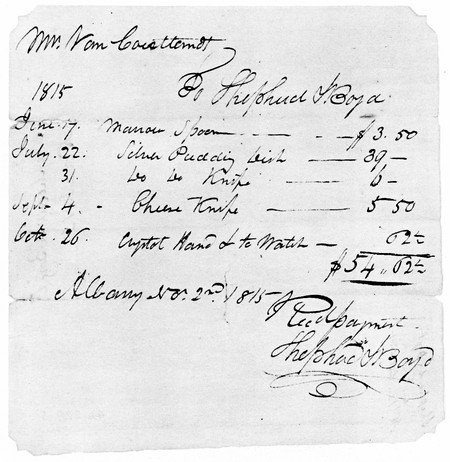 Mr. Van Cortlandt
1815 To Shepherd & Boyd
June 17. Marrow Spoon $3.50
July 22. Silver Pudding Dish 39 –
31. Do Do Knife 6 –
Sept 4. - Cheese Knife 5 50
Octr 26. Crystal Hand & to Watch – 62½
$54,,62½
Albany Nov. 2nd 1815
Recd payment
Shepherd & Boyd